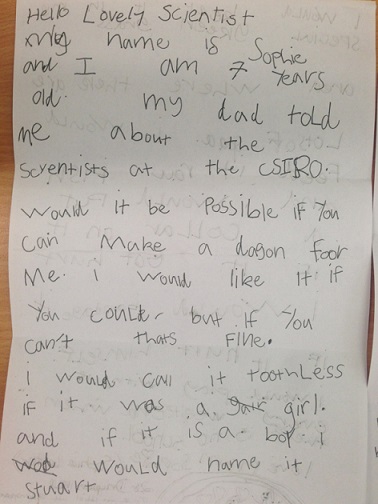 Hello Lovely Scientist
my name is Sophie
and I am 7 Years
old. my dad told
me about the
Screntists at the CSIRO.
Would it be Possible if You
can Make a dogon foor
Me. i would like it if
You could. but if You
can't thats Fine.
i would call it toothless
if it was a girl.
and if it is a boy i
would name it
Stuart